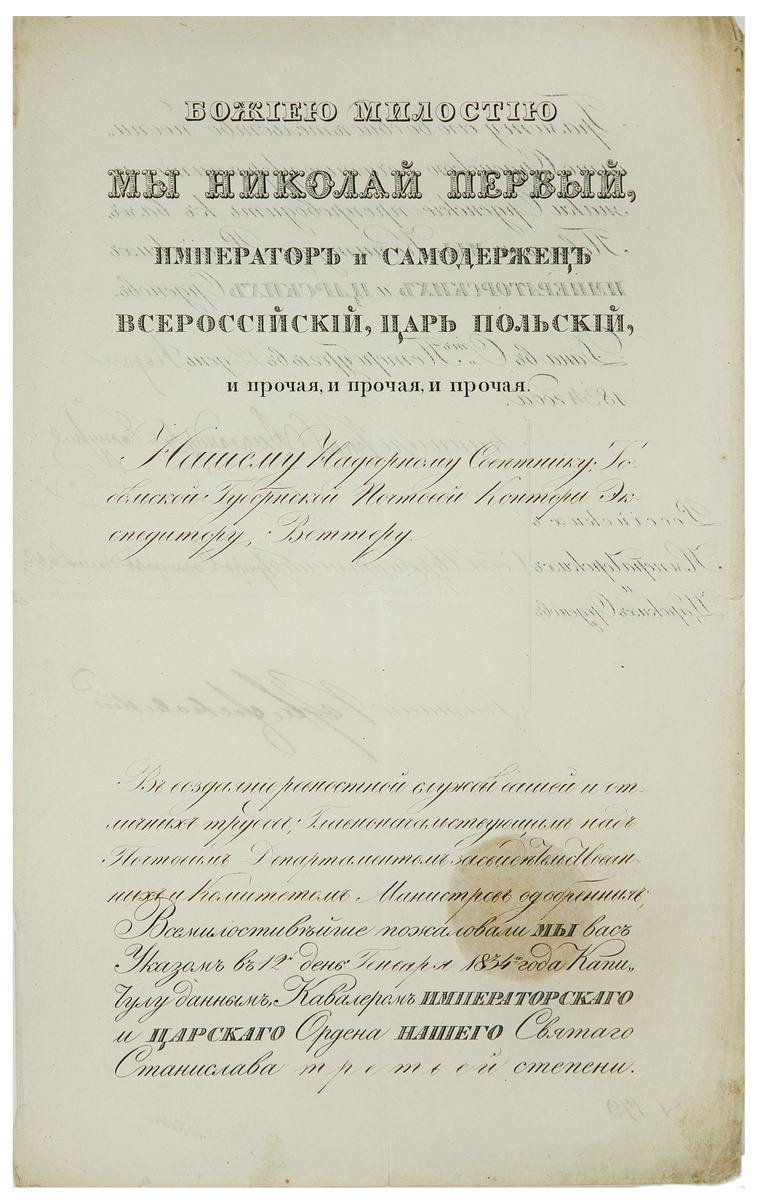 БОЖІЕЮ МИЛОСТІЮ
МЫ НИКОЛАЙ ПЕРВЫЙ,
ИМПЕРАТОРЪ и САМОДЕРЖЕЦЪ
ВСЕРОССІЙСКІЙ, ЦАРЬ ПОЛЬСКІЙ,
и прочая, и прочая, и прочая.
Нашему Надворному Совѣтнику,
Губернской Почтовой Конторы Эк-
спедитору, Веттеру.
Въ воздаяніе ревностной службы вашей и от-
личныхъ трудовъ, Главноначальствующимъ надъ
Почтовымъ Департаментомъ засвидѣтельствован-
ныхъ и Комитетомъ Министровъ одобренныхъ,
Всемилостивѣйше пожаловали МЫ васъ
Указомъ въ 12й день Генваря 1834го года Капи„
тулу даннымъ, Кавалеромъ ИМПЕРАТОРСКАГО
и ЦАРСКАГО Ордена НАШЕГО Святаго
Станислава третьей степени.